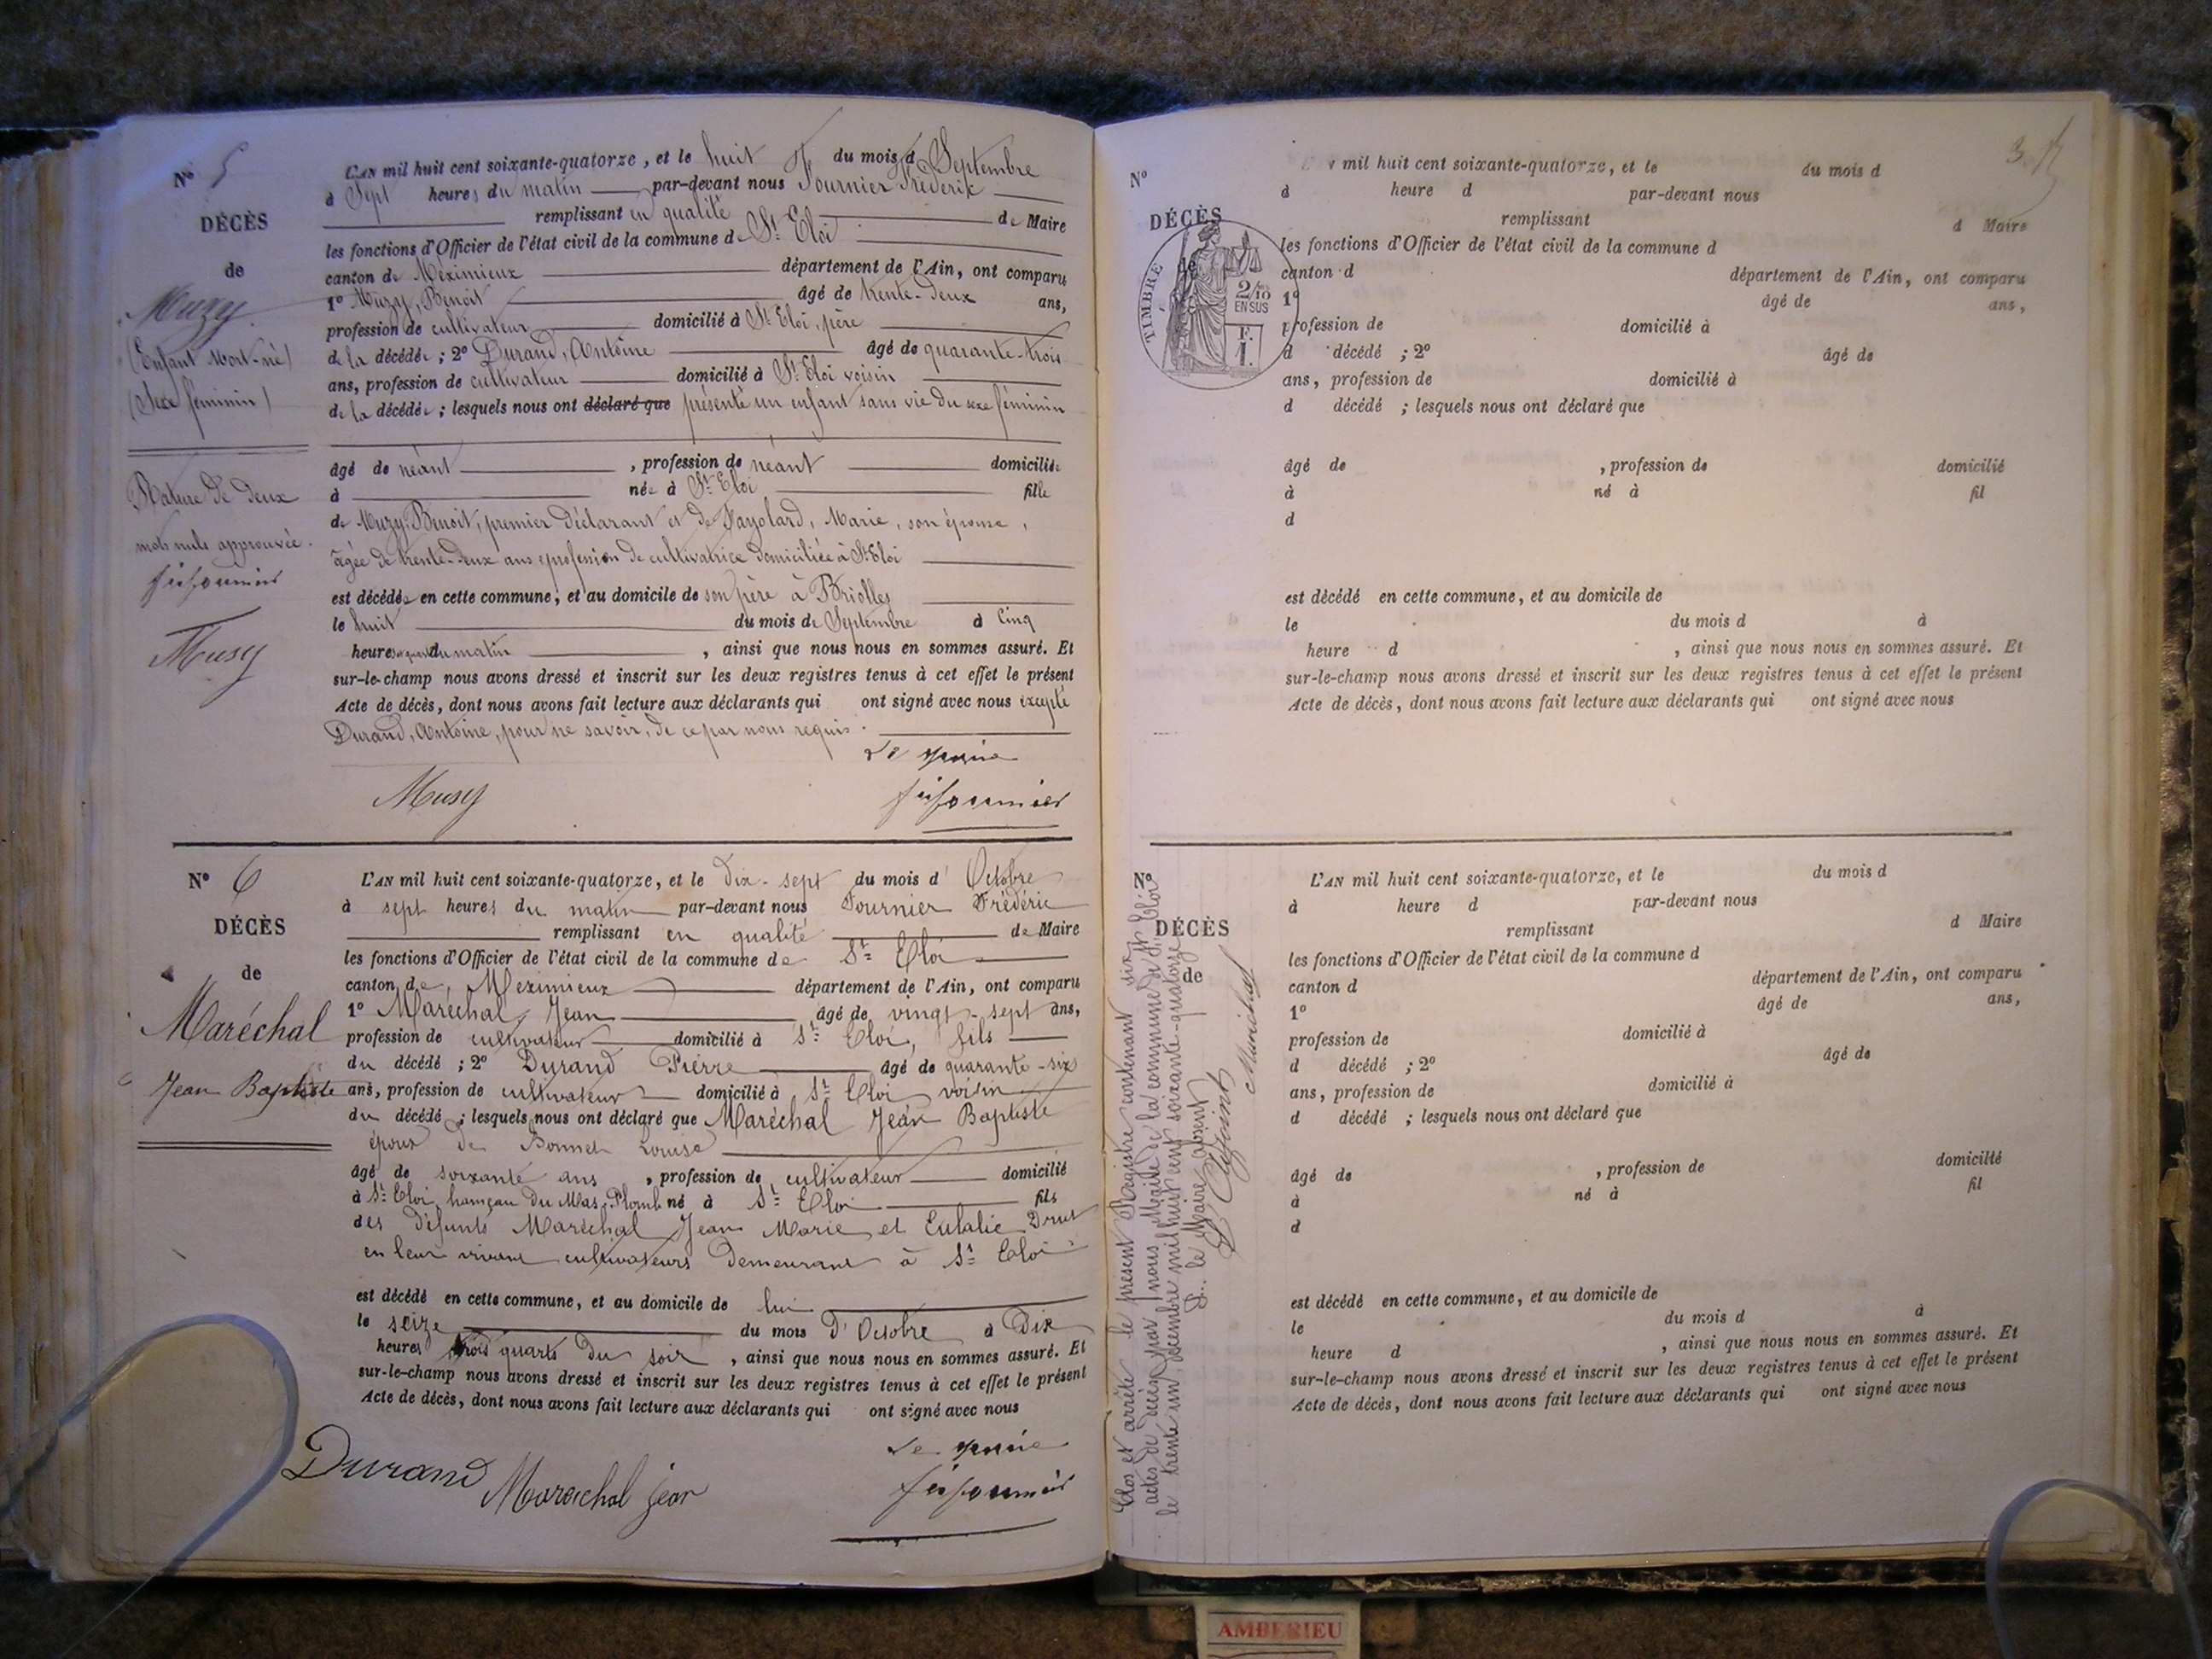 N° 5
DÉCÈS
de
Muzy
(Enfant Mort-né)
(Sexe féminin)
Rature de deux
mots nuls approuvée.
Musy
L'AN mil huit cent soixante-quatorze, et le huit du mois d Septembre
à Sept heures du matin par-devant nous Fournier Fréderic
remplissant en qualité de Maire
les fonctions d'Officier de l'état civil de la commune de St Eloi
canton de Méximieux département de l'Ain, ont comparu
1° Muzy, Benoit âgé de trente-deux ans,
profession de cultivateur domicilié à St Eloi, père
de la décédée ; 2° Durand, Antoine âgé de quarante-trois
ans, profession de cultivateur domicilié à St Eloi voisin
de la décédée ; lesquels nous ont déclaré que présenté un enfant sans vie du sexe féminin
âgé de néant , profession de néant domiciliée
à née à St Eloi fille
de Muzy Benoit, premier déclarant et de Fayolard, Marie, son épouse,
âgée de trente-deux ans profession de cultivatrice domiciliée à St Eloi
est décédée en cette commune, et au domicile de son père à Briolles
le huit du mois de Septembre à Cinq
heures du matin , ainsi que nous nous en sommes assuré. Et
sur-le-champ nous avons dressé et inscrit sur les deux registres tenus à cet effet le présent
Acte de décès, dont nous avons fait lecture aux déclarants qui ont signé avec nous excepté
Durand, Antoine, pour ne savoir, de ce par nous requis.
Le maire
Musy
N° 6
DÉCÈS
de
Maréchal
Jean Baptiste
L'AN mil huit cent soixante-quatorze, et le Dix-sept du mois d' Octobre
à sept heures du matin par-devant nous Fournier Frédéric
remplissant en qualité de Maire
les fonctions d'Officier de l'état civil de la commune de St Eloi
canton de Meximieux département de l'Ain, ont comparu
1° Maréchal Jean âgé de vingt-sept ans,
profession de cultivateur domicilié à St Eloi, fils
du décédé ; 2° Durand Pierre âgé de quarante-six
ans, profession de cultivateur domicilié à St Eloi voisin
du décédé ; lesquels nous ont déclaré que Maréchal Jean Baptiste
époux de Bonnet Louise
âgé de soixante ans , profession de cultivateur domicilié
à St Eloi, hameau du Mas Plomb né à St Eloi fils
des défunts Maréchal Jean Marie et Eulalie Drut
en leur vivant cultivateurs demeurant à St Eloi
est décédé en cette commune, et au domicile de lui
le seize du mois D'Octobre à Dix
heures trois quarts du soir , ainsi que nous nous en sommes assuré. Et
sur-le-champ nous avons dressé et inscrit sur les deux registres tenus à cet effet le présent
Acte de décès, dont nous avons fait lecture aux déclarants qui ont signé avec nous
Le maire
Durand Marechal jean
3
N°
DÉCÈS
de
TIMBRE
2/10
EN SUS
F.
1.
mil huit cent soixante-quatorze, et le du mois d
à heure d par-devant nous
remplissant d Maire
les fonctions d'Officier de l'état civil de la commune d
canton d département de l'Ain, ont comparu
1° âgé de ans,
profession de domicilié à
d décédé ; 2° âgé de
ans, profession de domicilié à
d décédé ; lesquels nous ont déclaré que
âgé de , profession de domicilié
à né à fil
d
est décédé en cette commune, et au domicile de
le du mois d à
heure d , ainsi que nous nous en sommes assuré. Et
sur-le-champ nous avons dressé et inscrit sur les deux registres tenus à cet effet le présent
Acte de décès, dont nous avons fait lecture aux déclarants qui ont signé avec nous
N°
DÉCÈS
de
Clos et arrêté le présent Registre contenant six
actes de décès par nous Maire de la commune de St Eloi
le trente un décembre mil huit cent soixante-quatorze
P. le Maire absent
L'Adjoint
Maréchal
L'AN mil huit cent soixante-quatorze, et le du mois d
à heure d par-devant nous
remplissant d Maire
les fonctions d'Officier de l'état civil de la commune d
canton d département de l'Ain, ont comparu
1° âgé de ans,
profession de domicilié à
d décédé ; 2° âgé de
ans, profession de domicilié à
d décédé ; lesquels nous ont déclaré que
âgé de , profession de domicilié
à né à fil
d
est décédé en cette commune, et au domicile de
le du mois d à
heure d , ainsi que nous nous en sommes assuré. Et
sur-le-champ nous avons dressé et inscrit sur les deux registres tenus à cet effet le présent
Acte de décès, dont nous avons fait lecture aux déclarants qui ont signé avec nous
AMBERIEU